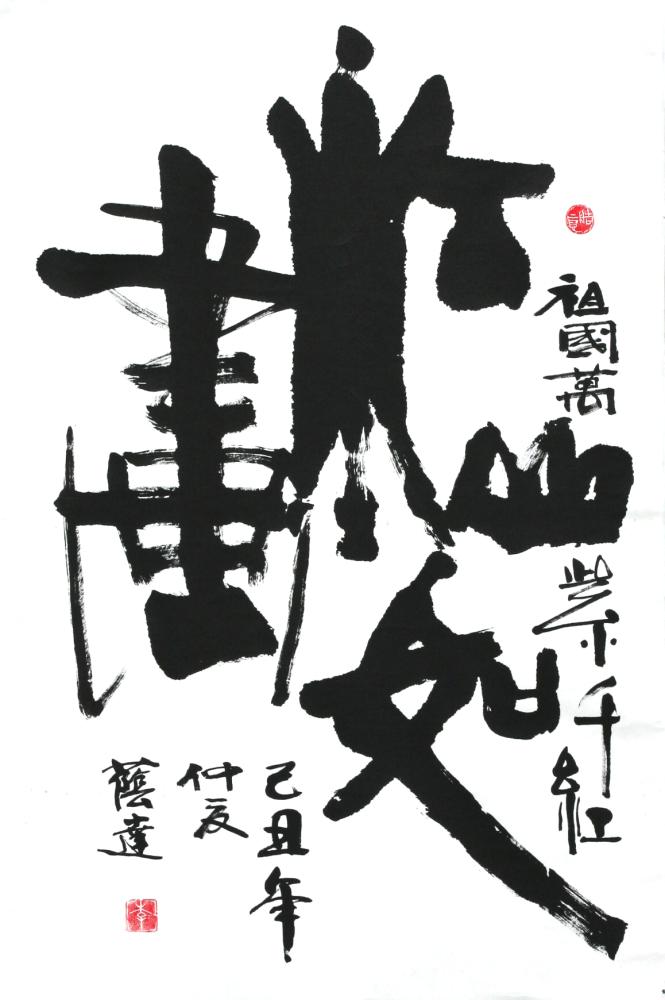 江山如畫
祖國萬紫千紅
己丑年
仲夏
蔭達